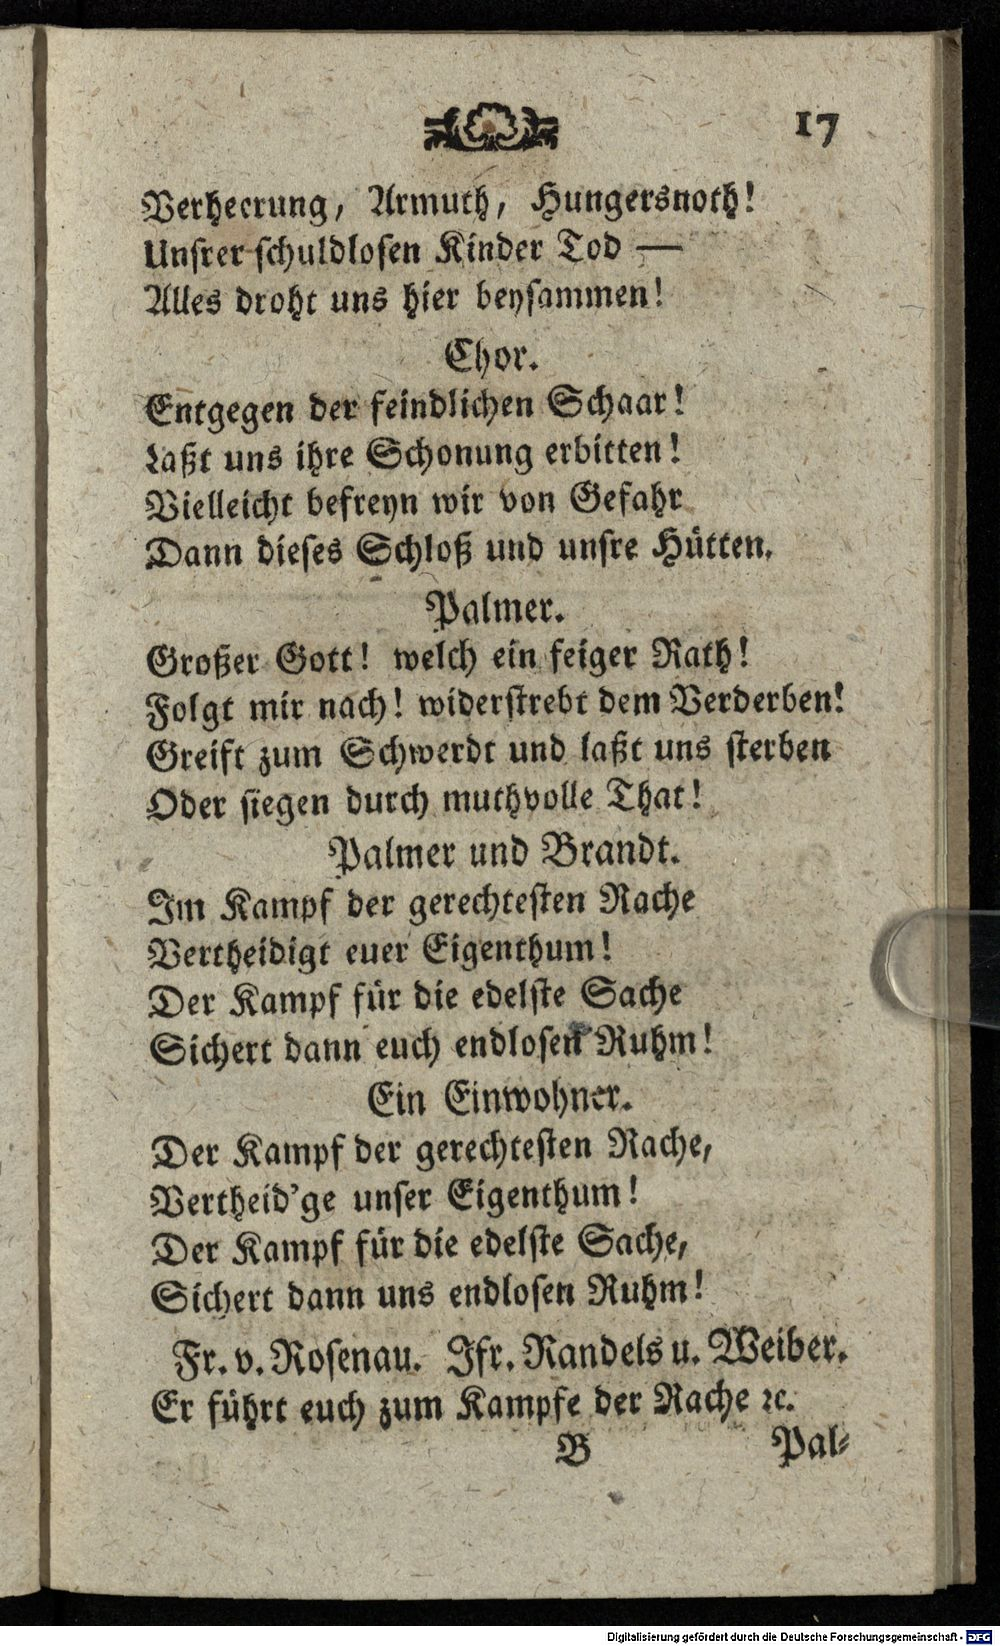 17
Verheerung, Armuth, Hungersnoth!
Unsrer schuldlosen Kinder Tod —
Alles droht uns hier beysammen!
Chor.
Entgegen der feindlichen Schaar!
Laßt uns ihre Schonung erbitten!
Vielleicht befreyn wir von Gefahr
Dann dieses Schloß und unsre Hütten.
Palmer.
Großer Gott! welch ein feiger Rath!
Folgt mir nach! widerstrebt dem Verderben!
Greift zum Schwerdt und laßt uns sterben
Oder siegen durch muthvolle That!
Palmer und Brandt.
Im Kampf der gerechtesten Rache
Vertheidigt euer Eigenthum!
Der Kampf für die edelste Sache
Sichert dann euch endlosen Ruhm!
Ein Einwohner.
Der Kampf der gerechtesten Rache,
Vertheid'ge unser Eigenthum!
Der Kampf für die edelste Sache,
Sichert dann uns endlosen Ruhm!
Fr. v. Rosenau. Jfr. Randels u. Weiber.
Er führt euch zum Kampfe der Rache ꝛc.
B Pal-
Digitalisierung gefördert durch die Deutsche Forschungsgemeinschaft - DFG